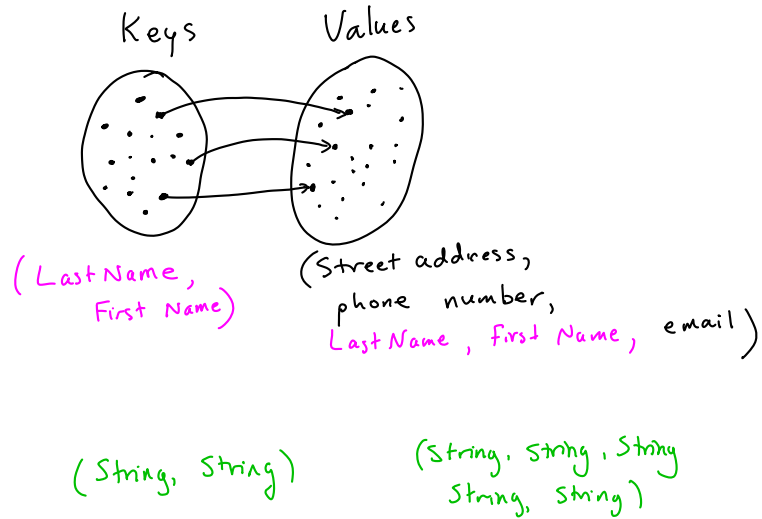 Keys
Values
(Last Name,
First Name)
(Street address,
phone number,
Last Name, first Name, email)
(String, String)
(String, String, String
String, String)